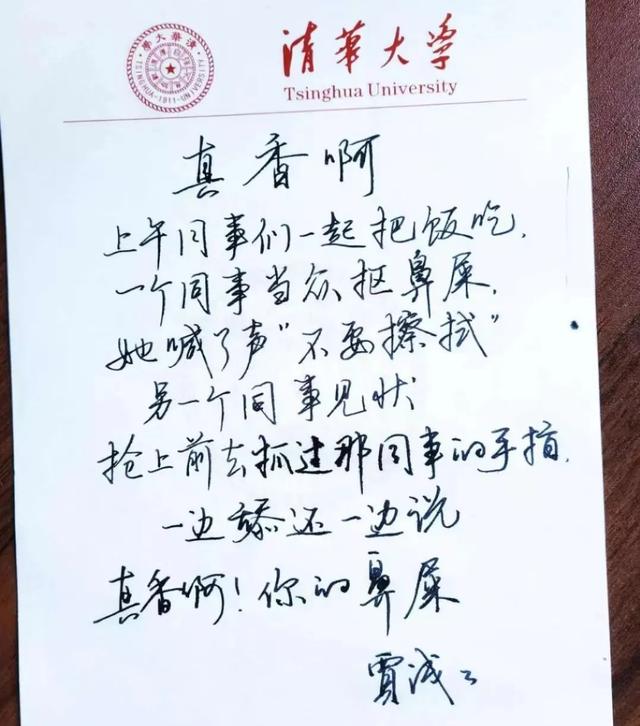 清華大學
TSINGHUA-1911-UNIVERSITY
清華大学
Tsinghua University
真香啊
上午同事们一起把饭吃,
一个同事当众抠鼻屎,
她喊了声“不要擦拭”
另一个同事见状
抢上前去抓过那同事的手指,
一边舔还一边说
真香啊!你的鼻屎
贾浅浅